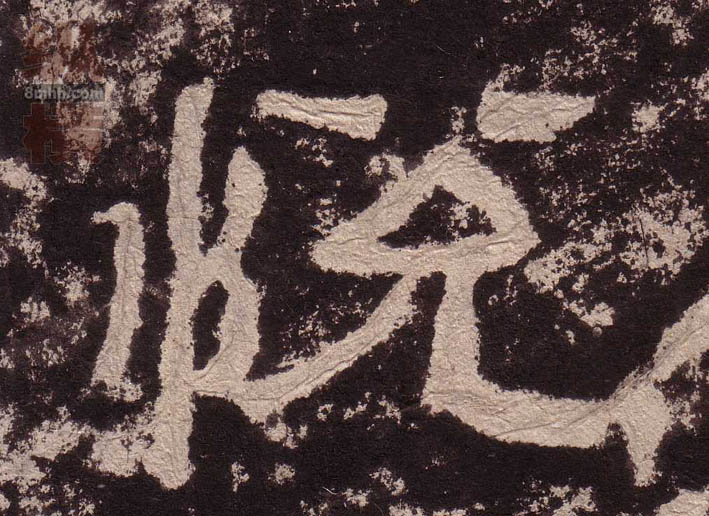 8mhh.com
悦